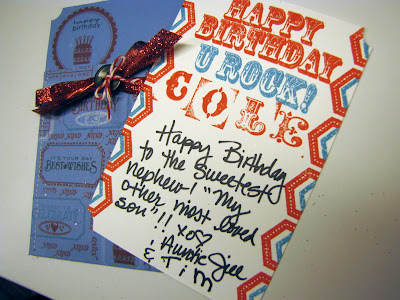 happy
birthday
Birthday
IT'S YOUR DAY
BEST WISHES
HAPPY
BIRTHDAY
U ROCK!
COLE
Happy Birthday
to the Sweetest
nephew! "My
other most loved
son"!! xo♡
: Auntie Jee
& Tim